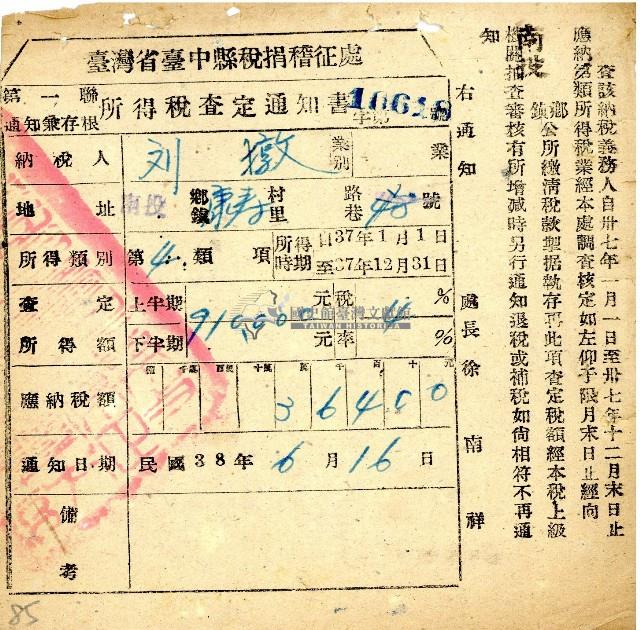 臺灣省臺中縣稅捐稽征處
第一聯
通知兼存根
所得稅查定通知書
字第10618號
納稅人 刘 業別 業
地址 南投 鄉鎮 康寿 村里 路巷 48 號
所得類別 第4類 項 所得時期 自37年1月1日 至37年12月31日
查定所得額 上半期 元 稅率 4 %
下半期 910,000 元 %
應納稅額 億 千萬 百萬 十萬 萬 千 百 十 元
36480
通知日期 民國38年6月16日
備考
85
查該納稅義務人自卅七年一月一日至卅七年十二月末日止
應納第類所得稅業經本處調查核定如左仰于限月末日止經向
南投 鄉鎮公所繳清稅款掣据執存再此項查定稅額經本稅上級
機關抽查審核有所增減時另行通知退稅或補稅如尚相符不再通
知
右通知
處長徐南祥
國史館臺灣文獻館
TAIWAN HISTORICA